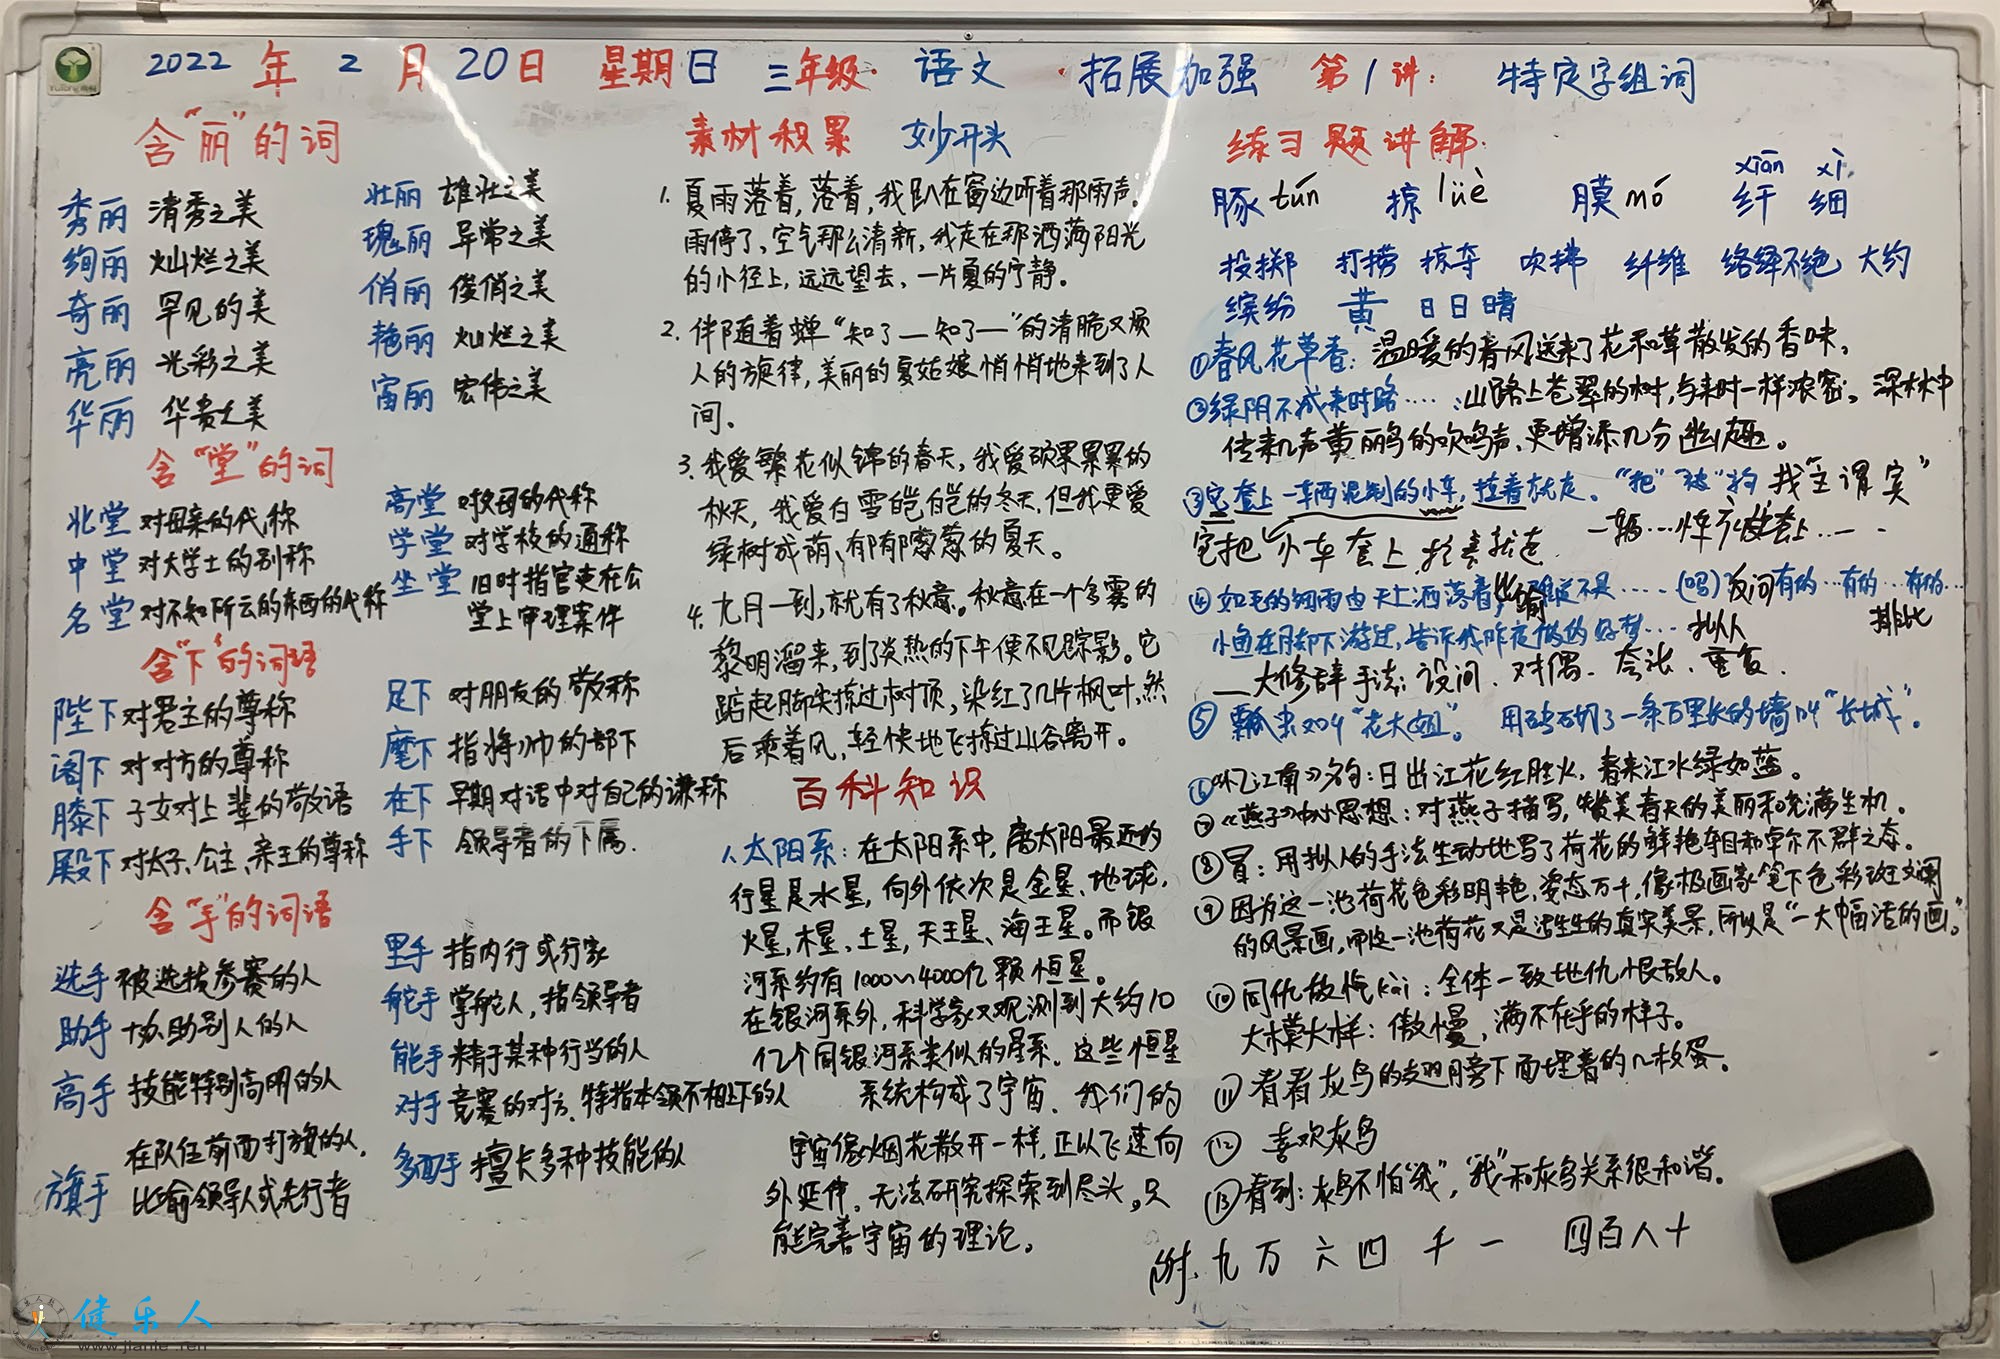 2022年2月20日 星期日 三年级·语文·拓展加强 第1讲: 特定字组词
含"丽"的词
秀丽 清秀之美
绚丽 灿烂之美
奇丽 罕见的美
亮丽 光彩之美
华丽 华贵之美
壮丽 雄壮之美
瑰丽 异常之美
俏丽 俊俏之美
艳丽 灿烂之美
宙丽 宏伟之美
含"堂"的词
北堂 对母亲的代称
中堂 对大学士的别称
名堂 对不知所云的东西的代称
高堂 对父母的代称
学堂 对学校的通称
坐堂 旧时指官吏在公
堂上审理案件
含"下"的词语
陛下 对君主的尊称
阁下 对对方的尊称
膝下 子女对上辈的敬语
殿下 对太子、公主、亲王的尊称
足下 对朋友的敬称
麾下 指将帅的部下
在下 早期对话中对自己的谦称
手下 领导者的下属.
含"手"的词语
选手 被选拔参赛的人
助手 协助别人的人
高手 技能特别高明的人
在队伍前面打旗的人,
旗手 比喻领导人或先行者
里手 指内行或行家
舵手 掌舵人,指领导者
能手 精于某种行当的人
对手 竞赛的对方、特指本领不相上下的人
多面手 擅长多种技能的人
素材积累 妙开头
1. 夏雨落着,落着,我趴在窗边听着那雨声。
雨停了,空气那么清新,我走在那洒满阳光
的小径上,远远望去,一片夏的宁静。
2. 伴随着蝉"知了—知了—"的清脆又烦
人的旋律,美丽的夏姑娘悄悄地来到了人
间。
3. 我爱繁花似锦的春天,我爱硕果累累的
秋天,我爱白雪皑皑的冬天,但我更爱
绿树成荫、郁郁葱葱的夏天。
4. 九月一到,就有了秋意。秋意在一个多雾的
黎明溜来,到了炎热的下午便不见踪影。它
踮起脚尖掠过树顶,染红了几片枫叶,然
后乘着风,轻快地飞掠过山谷离开。
百科知识
1. 太阳系:在太阳系中,离太阳最近的
行星是水星,向外依次是金星、地球,
火星,木星、土星,天王星、海王星。而银
河系约有1000~4000亿颗恒星。
在银河系外,科学家又观测到大约10
亿个同银河系类似的星系。这些恒星
系统构成了宇宙。我们的
宇宙像烟花散开一样,正以飞速向
外延伸。无法研究探索到尽头。只
能完善宇宙的理论。
练习题讲解:
xiān xì
豚tún 掠lüè 膜mó 纤 细
投掷 打捞 掠夺 吹拂 纤维 络绎不绝 大约
缤纷 黄 日日晴
①春风花草香:温暖的春风送来了花和草散发的香味。
②绿阴不减来时路……:山路上苍翠的树,与来时一样浓密。深林中
传来几声黄鹂鸟的吹鸣声,更增添几分幽趣。
③它套上一辆泥制的小车,拉着就走。"把""被"构 找"主谓宾"
它把小车套上,拉着就走. 一辆…小车被套上……
④如毛的细雨由天上洒落着 比喻 难道不是……(吗)反问 有的…有的…有的…
小鱼在脚下游过,告诉我昨夜做的好梦…拟人 排比
—大修辞手法:设问、对偶、夸张、重复.
⑤瓢虫又叫"花大姐"。 用砖砌了一条万里长的墙叫"长城"。
⑥《忆江南》名句:日出江花红胜火,春来江水绿如蓝。
⑦《燕子》中心思想:对燕子描写,赞美春天的美丽和充满生机。
⑧冒:用拟人的手法生动地写了荷花的鲜艳夺目和卓尔不群之态。
⑨因为这一池荷花色彩明艳,姿态万千,像极画家笔下色彩斑斓
的风景画,而这一池荷花又是活生生的真实美景,所以是"一大幅活的画。"
⑩同仇敌忾kài:全体一致地仇恨敌人。
大模大样:傲慢,满不在乎的样子。
⑪看看灰鸟的翅膀下面埋着的几枚蛋。
⑫喜欢灰鸟
⑬看到:灰鸟不怕"我","我"和灰鸟关系很和谐。
附.九万六四千一 四百八十
健乐人
www.jianle.ren